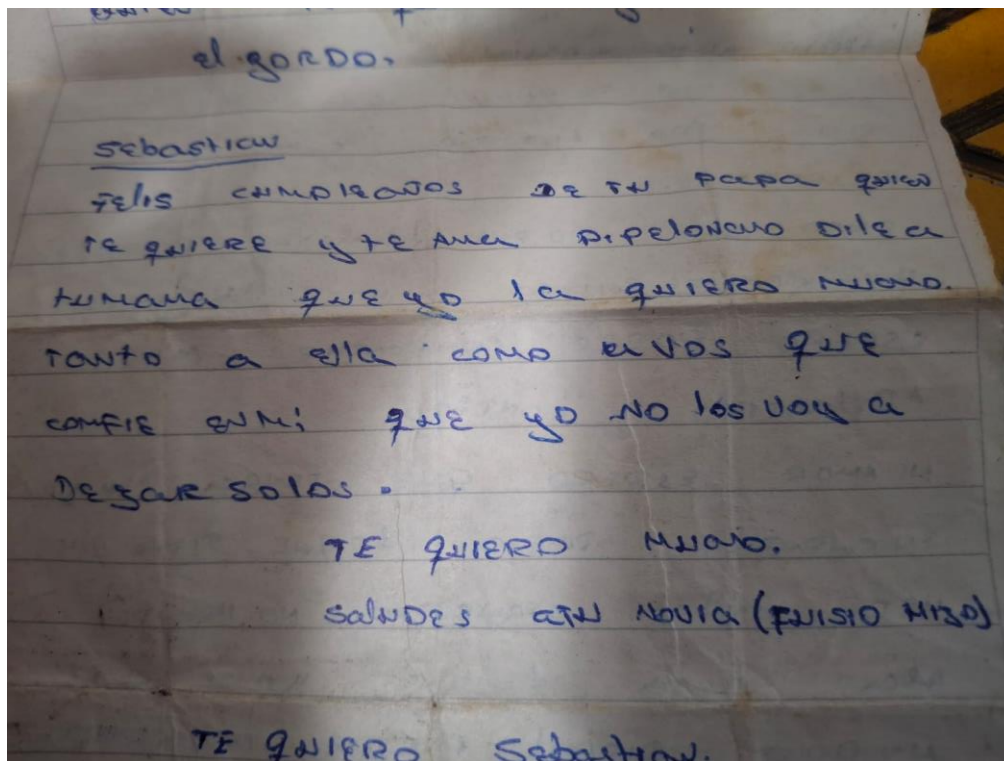 el gordo.
Sebastian
Felis cumpleaños de tu papa quien
te quiere y te ama pipelonauo dile a
tumama que yo la quiero mucho.
tanto a ella como a vos que
comfie enmi que yo no los voy a
Degar solos.
TE QUIERO mucho.
Saludes atu novia
TE QUIERO Sebastian.